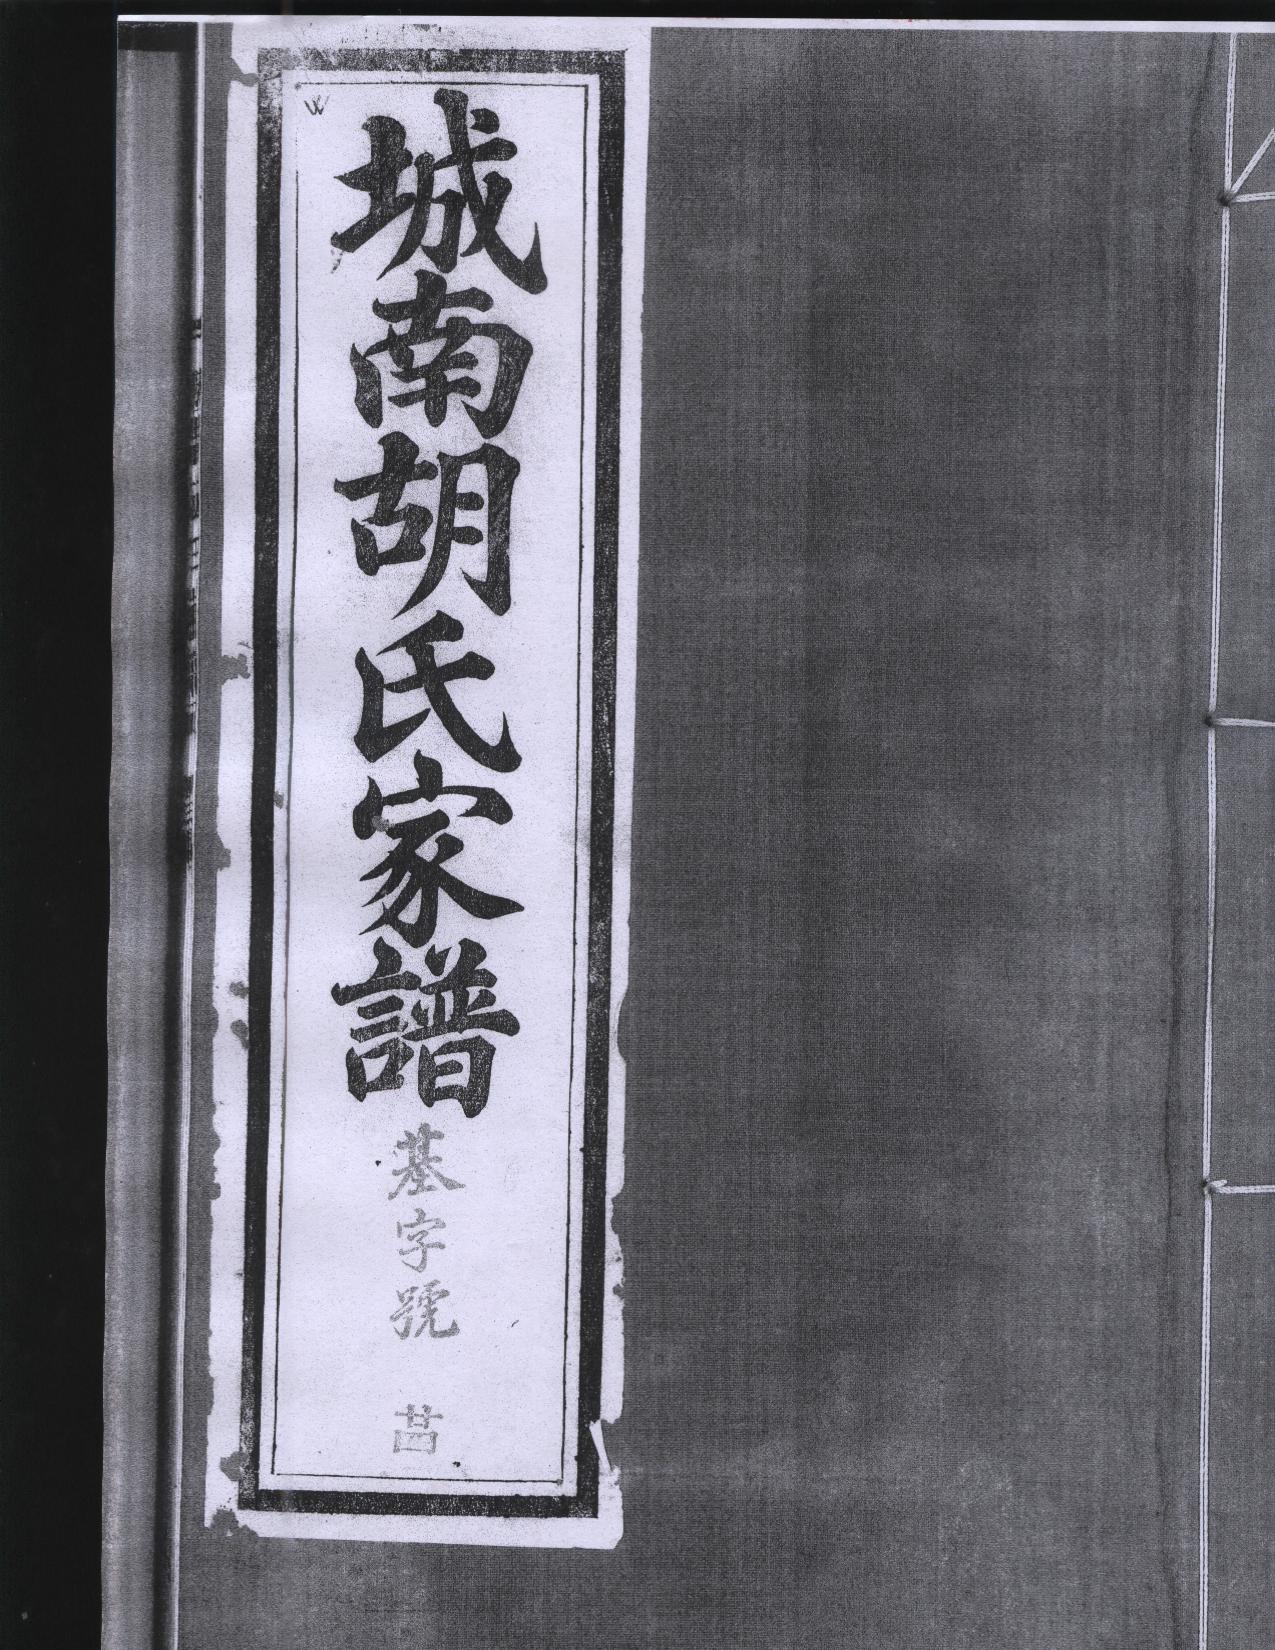 城南胡氏家譜
基字號